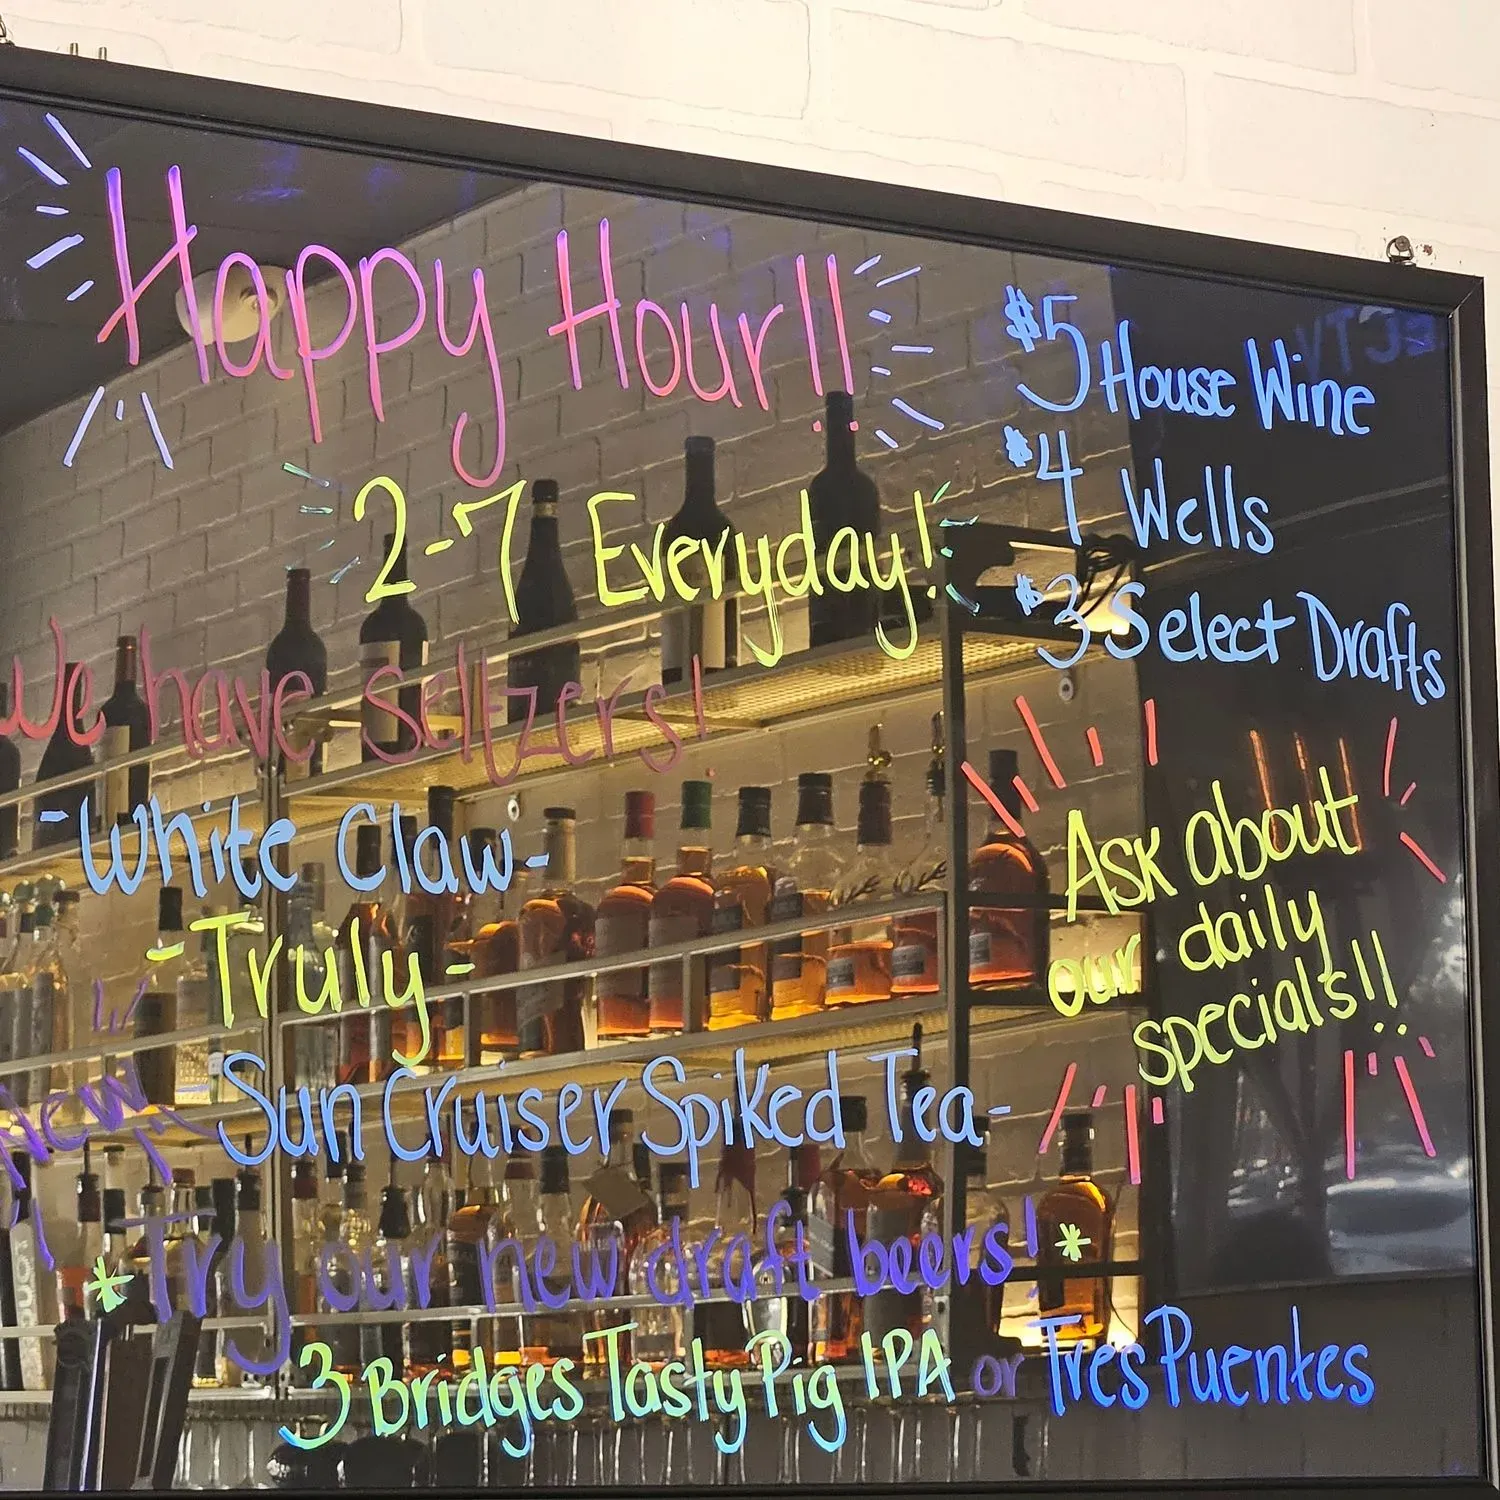 Happy Hour!!
2-7 Everyday!
$5 House Wine
$4 Wells
$3 Select Drafts
We have seltzers!
-White Claw-
-Truly-
New
Sun Cruiser Spiked Tea-
Ask about
our daily
specials!!
*Try our new draft beers!*
3 Bridges Tasty Pig IPA or Tres Puentes